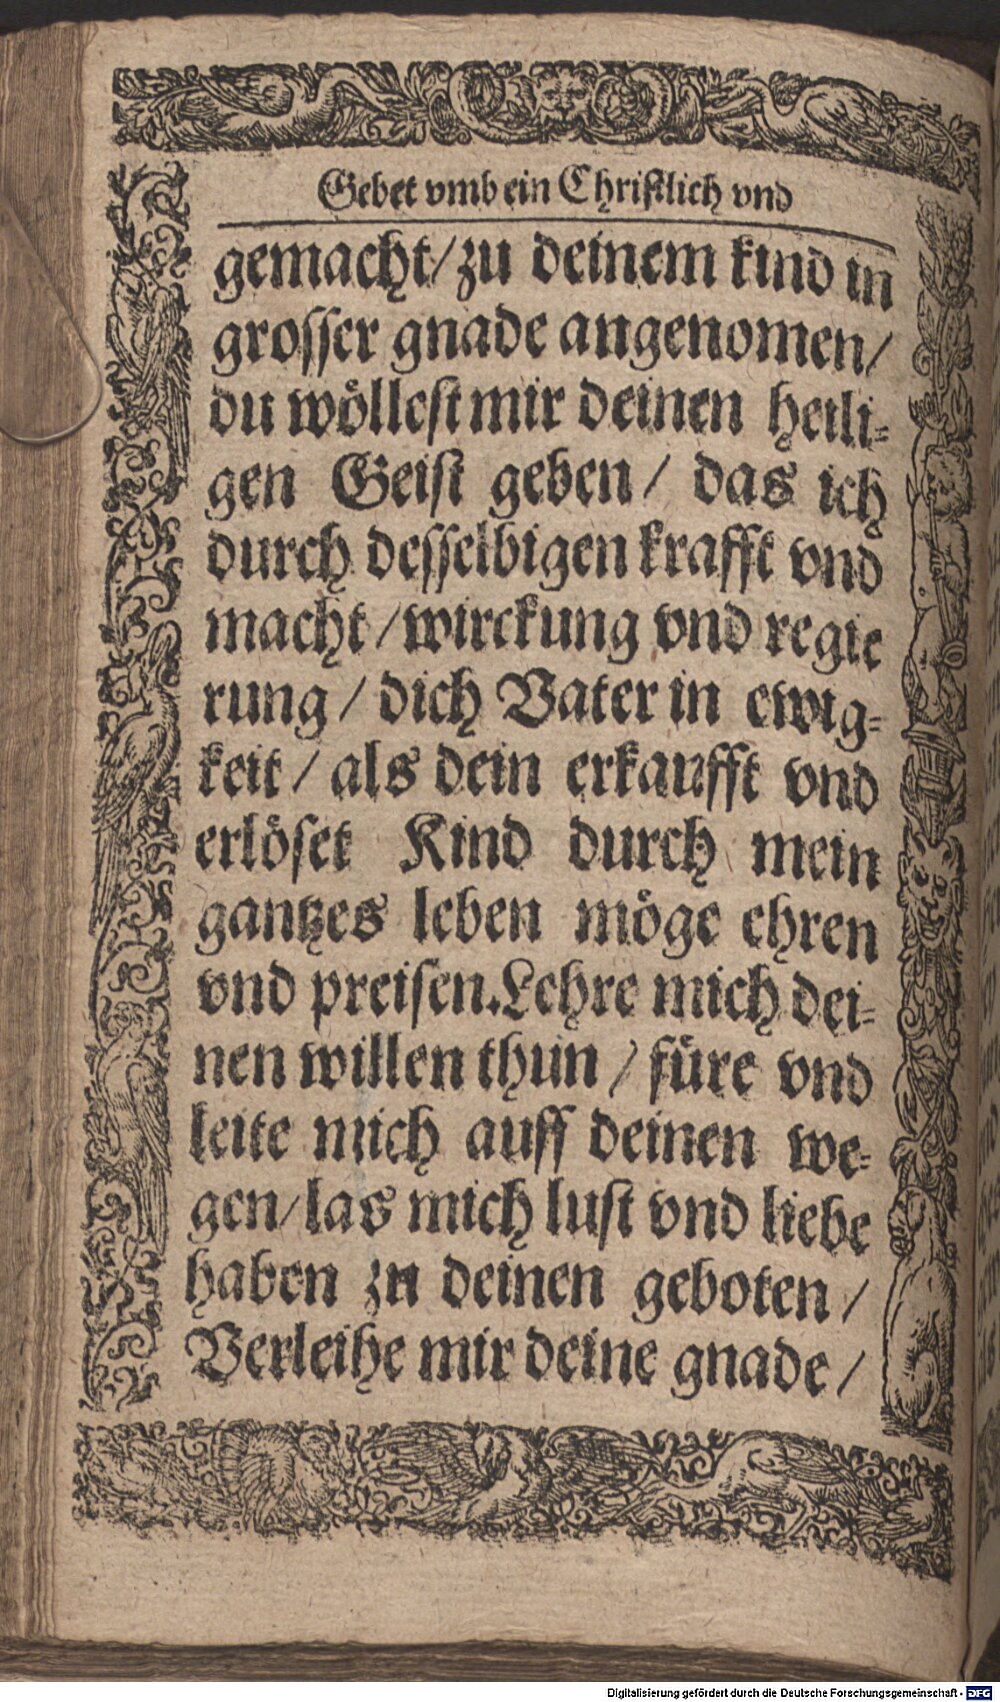 Gebet vmb ein Christlich vnd
gemacht/ zu deinem kind in
grosser gnade angenomen/
du wöllest mir deinen heili-
gen Geist geben/ das ich
durch desselbigen krafft vnd
macht/ wirckung vnd regie
rung/ dich Vater in ewig-
keit/ als dein erkaufft vnd
erlöset Kind durch mein
gantzes leben möge ehren
vnd preisen. Lehre mich dei-
nen willen thun/ füre vnd
leite mich auff deinen we-
gen/ las mich lust vnd liebe
haben zu deinen geboten/
Verleihe mir deine gnade/
Digitalisierung gefördert durch die Deutsche Forschungsgemeinschaft - DFG